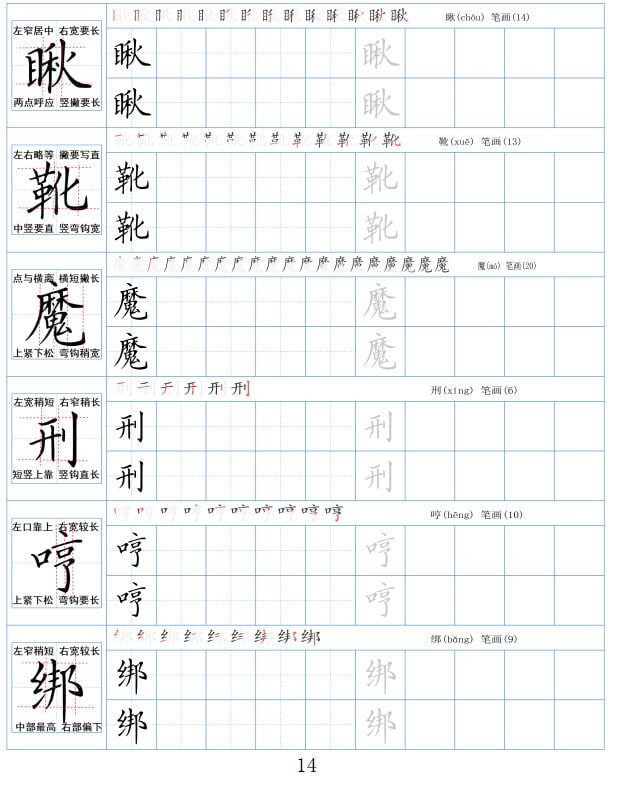 瞅(chǒu) 笔画(14)
左窄居中 右宽要长
瞅
两点呼应 竖撇要长
瞅 瞅
瞅 瞅
靴(xuē) 笔画(13)
左右略等 撇要写直
靴
中竖要直 竖弯钩宽
靴 靴
靴 靴
魔(mó) 笔画(20)
点与横离 横短撇长
魔
上紧下松 弯钩稍宽
魔 魔
魔 魔
刑(xíng) 笔画(6)
左宽稍短 右窄稍长
刑
短竖上靠 竖钩直长
刑 刑
刑 刑
哼(hēng) 笔画(10)
左口靠上 右宽较长
哼
上紧下松 弯钩要长
哼 哼
哼 哼
绑(bǎng) 笔画(9)
左窄稍短 右宽较长
绑
中部最高 右部偏下
绑 绑
绑 绑
14